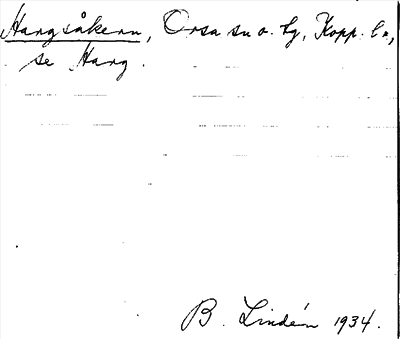 Hargsåkern, Orsa sn o. tg, Kopp. l.,
se Harg.
B. Lindén 1934.